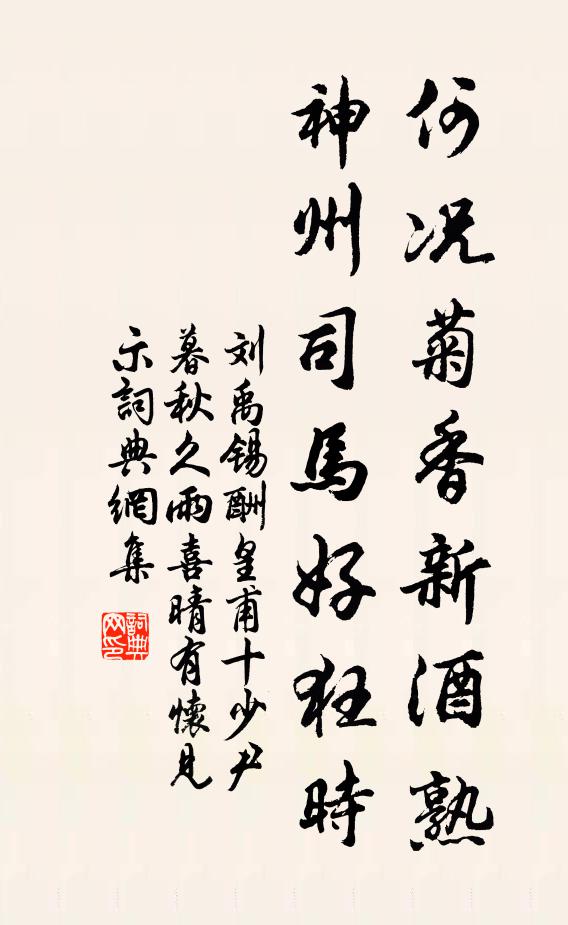 何况菊香新酒熟
神州司馬好狂時
刘禹锡酬皇甫十少尹
暮秋久雨喜晴有懷見
示詞典網集
詞典
网印